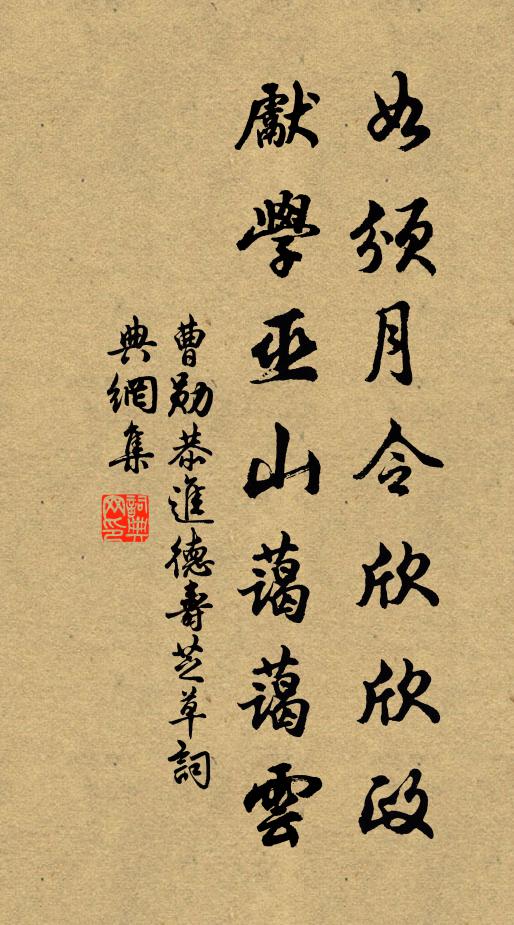 如頒月令欣欣政
獻學巫山藹藹雲
曹勛恭進德壽芝草詞
典網集
詞典網印